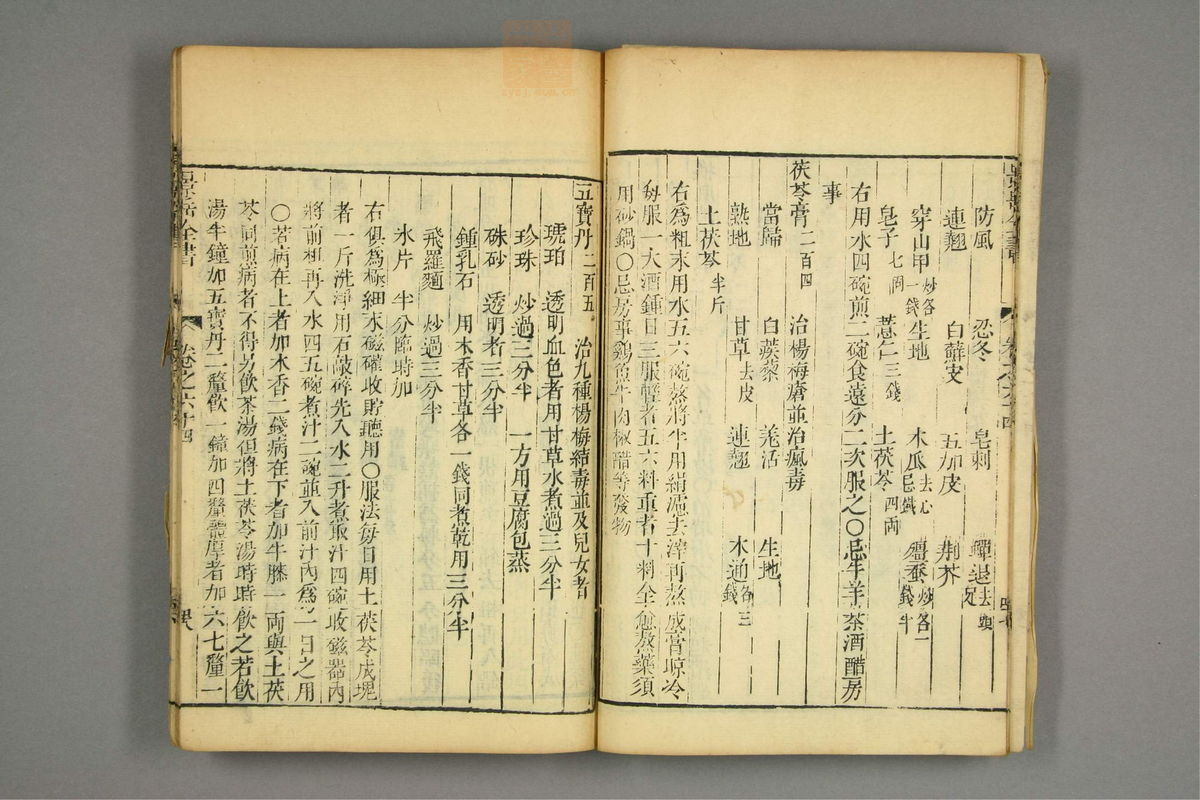 防風 忍冬 皂刺 蟬退去頭足
連翹 白蘚皮 五加皮 荆芥
穿山甲炒各一錢 生地 木瓜去心忌鐵 殭蚕炒各一錢半
皂子七個 薏仁三錢 土茯苓四兩
右用水四碗煎二碗食遠分二次服之〇忌牛羊茶酒醋房
事
茯苓膏二百四 治楊梅瘡並治瘋毒
當歸 白蒺藜 羌活 生地
熟地 甘草去皮 連翹 木通各三錢
土茯苓半斤
右爲粗末用水五六碗蒸將半用絹濾去滓再蒸成膏晾冷
每服一大酒鍾日三服輕者五六料重者十料全愈熬藥須
用砂鍋〇忌房事鷄魚牛肉椒醋等發物
五寶丹二百五 治九種楊梅結毒並及兒女者
琥珀 透明血色者用甘草水煮過三分半
珍珠 炒過三分半 一方用豆腐包蒸
硃砂 透明者三分半
鍾乳石 用木香甘草各一錢同煮乾用三分半
飛羅麵 炒過三分半
氷片 半分臨時加
右俱爲極細末磁礶收貯聽用〇服法每日用土茯苓成塊
者一斤洗淨用石敲碎先入水二升煮取汁四碗收磁器內
將前粗再入水四五碗煮汁二碗並入前汁內爲一日之用
〇若病在上者加木香二錢病在下者加牛膝一兩與土茯
苓同煎病者不得另飲茶湯但將土茯苓湯時時飲之若飲
湯半鐘加五寶丹二釐飲一鐘加四釐體厚者加六七釐一
景岳全書
卷之六十四